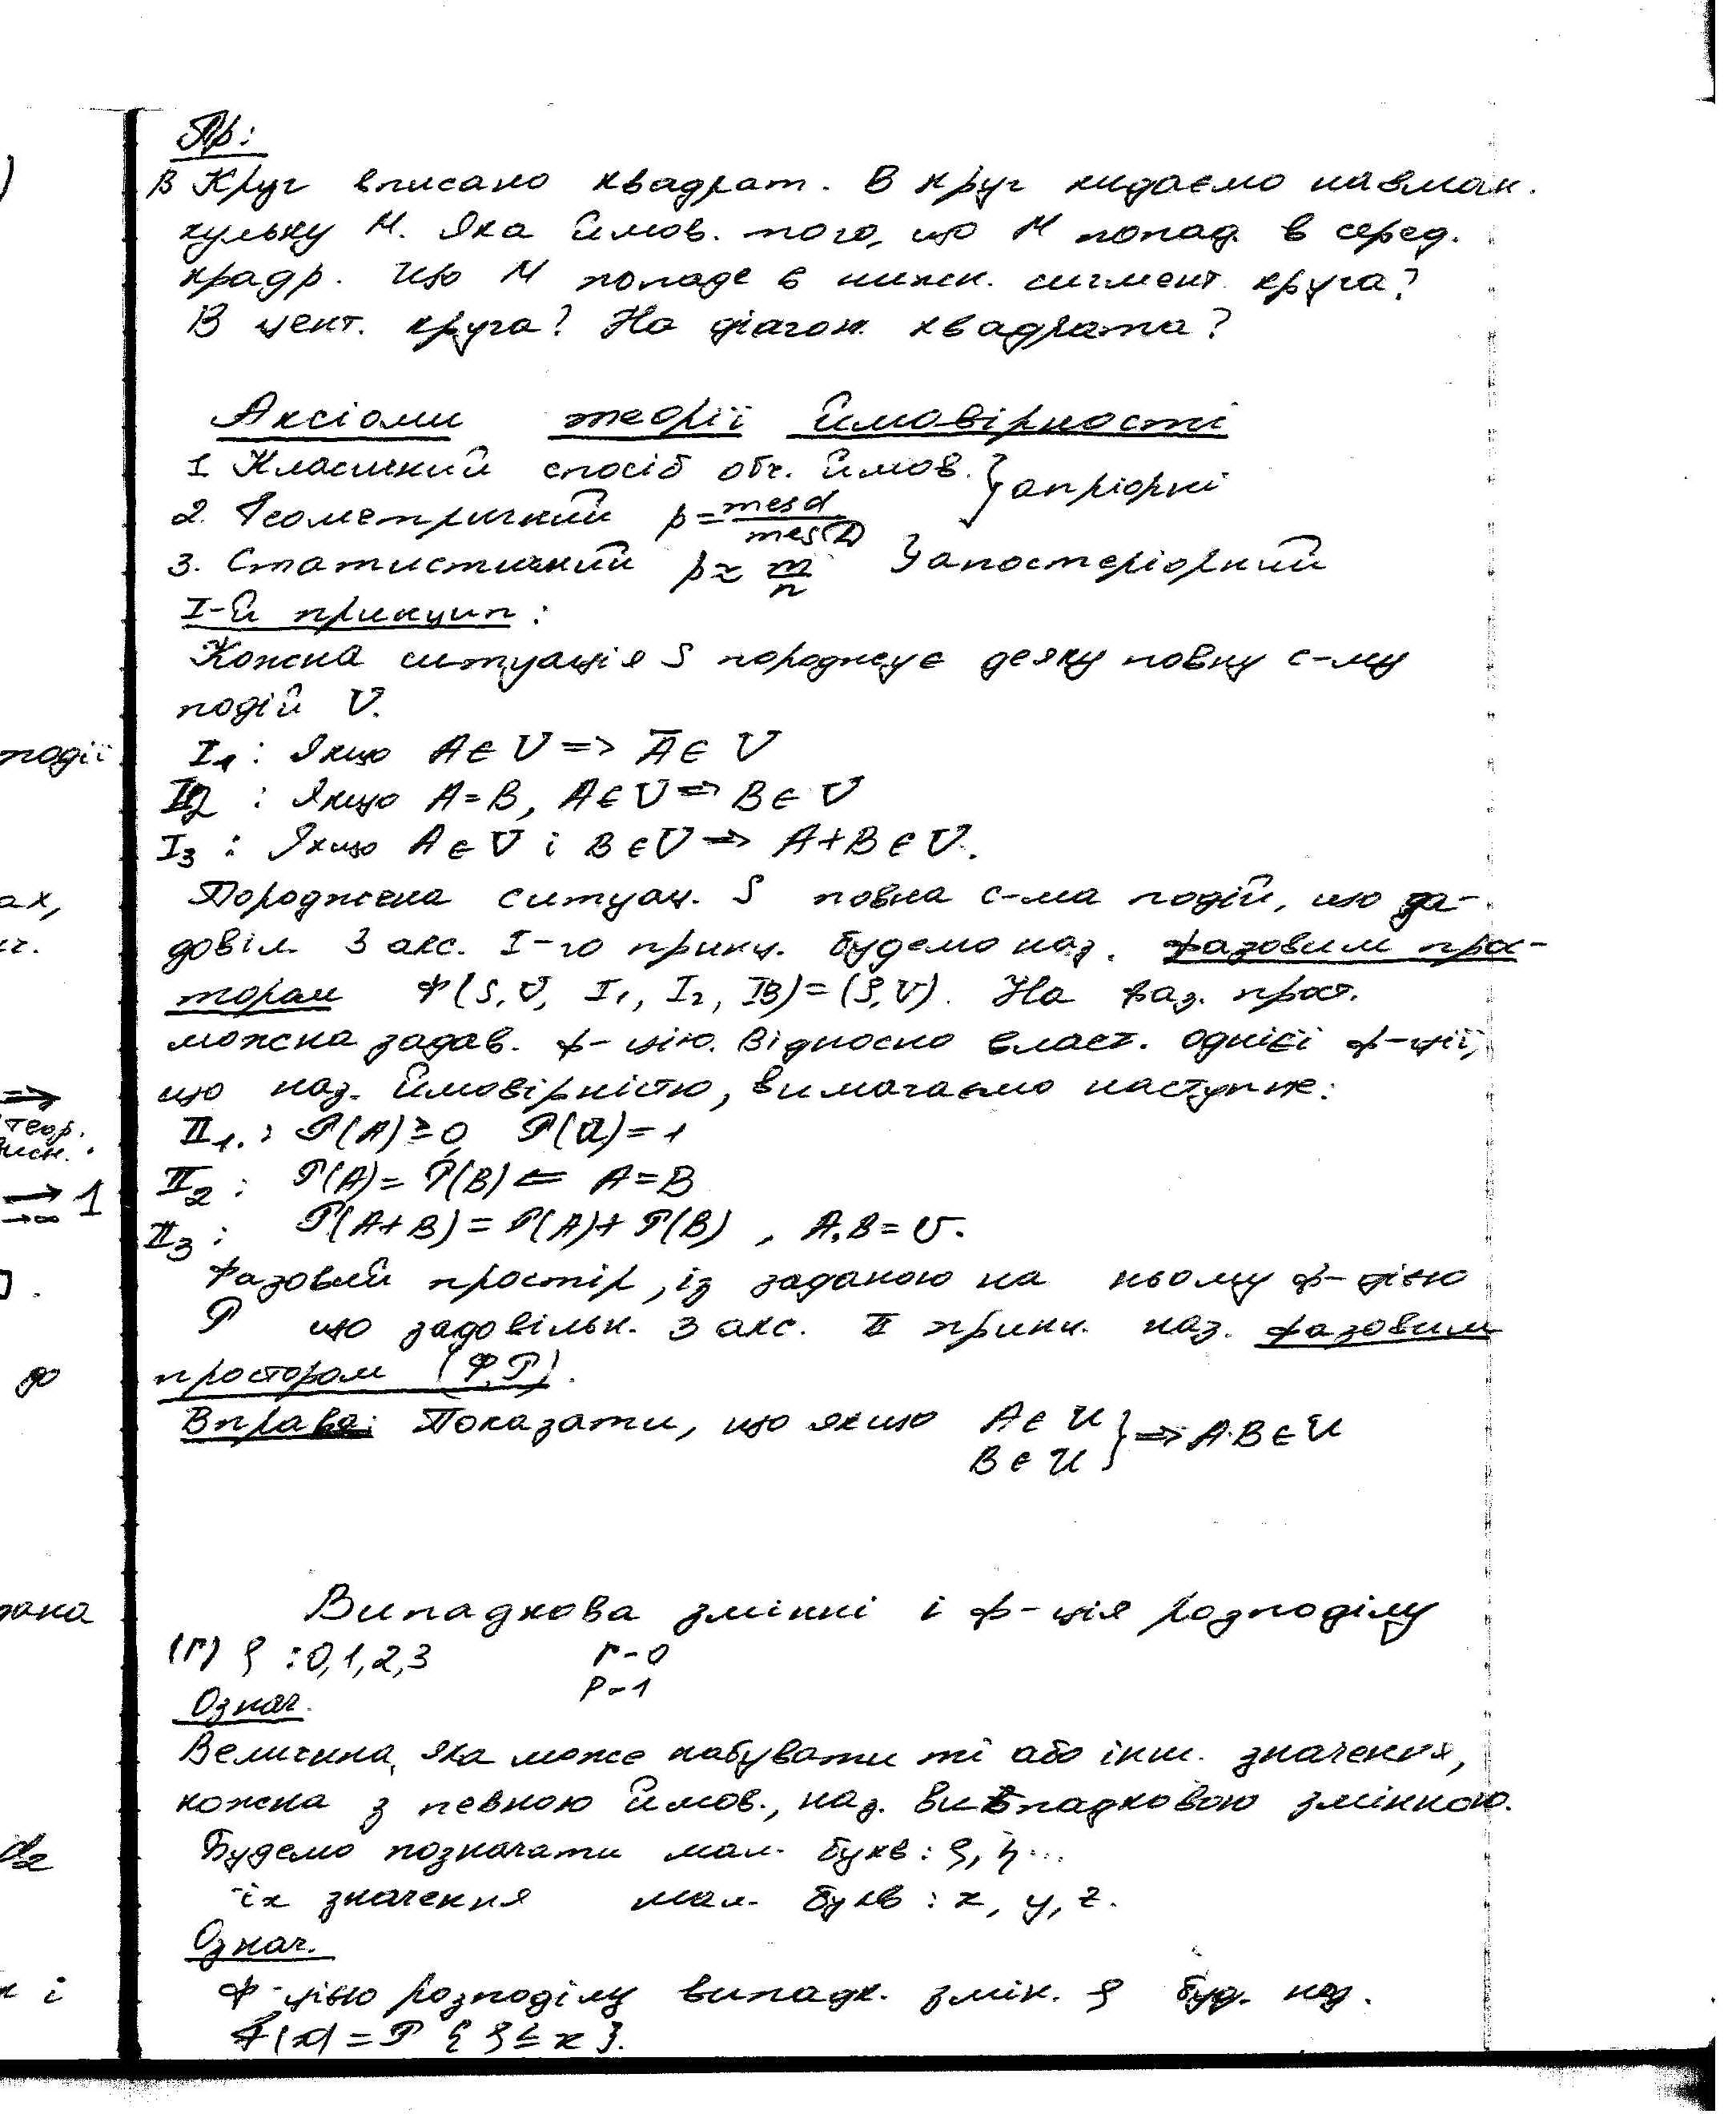 Пр:
В Круг вписано квадрат. В круг кидаємо навман.
кульку М. Яка ймов. того, що М попад. в серед.
крадр. Що М попаде в нижн. сигмент. круга?
В цент. круга? На діагон. квадрата?
Аксіоми теорії ймовірності
1 Класичний спосіб обч. ймов. } апріорні
2. Геометричний p = mes d / mes D
3. Статистичний p ≈ m/n } апостеріорний
I-й принцип:
Кожна ситуація S породжує деяку повну с-му
подій U.
події I₁: Якщо A ∈ U => Ā ∈ U
I₂: Якщо A = B, A ∈ U => B ∈ U
I₃: Якщо A ∈ U і B ∈ U => A+B ∈ U.
ах, Породжена ситуац. S повна с-ма подій, що за-
довіл. 3 акс. I-го принц. будемо наз. фазовим прос-
торам Ф(S, U, I₁, I₂, I3) = (S, U). На фаз. прост.
можна задав. ф-цію. Відносно власт. однієї ф-ції,
=> що наз. ймовірністю, вимагаємо наступне:
теор. II₁.: P(A) ≥ 0, P(Ω) = 1
→ 1 II₂: P(A) = P(B) <= A = B
→∞ II₃: P(A+B) = P(A) + P(B), A.B = U.
Фазовий простір, із заданою на ньому ф-цією
P що задовільн. 3 акс. II принц. наз. фазовим
до простором (Ф, P).
Вправа: Показати, що якщо A ∈ U } => A·B ∈ U
B ∈ U
Випадкова змінні і ф-ція розподілу
(Г) ξ : 0, 1, 2, 3 Г - 0
Р - 1
Означ.
Величина, яка може набувати ті або інш. значення,
кожна з певною ймов., наз. випадковою змінною.
Будемо позначати мал. букв: ξ, η...
їх значення мал. букв: x, y, z.
Означ.
і Ф-цією розподілу випадк. змін. ξ буд. наз.
F(x) = P {ξ ≤ x}.